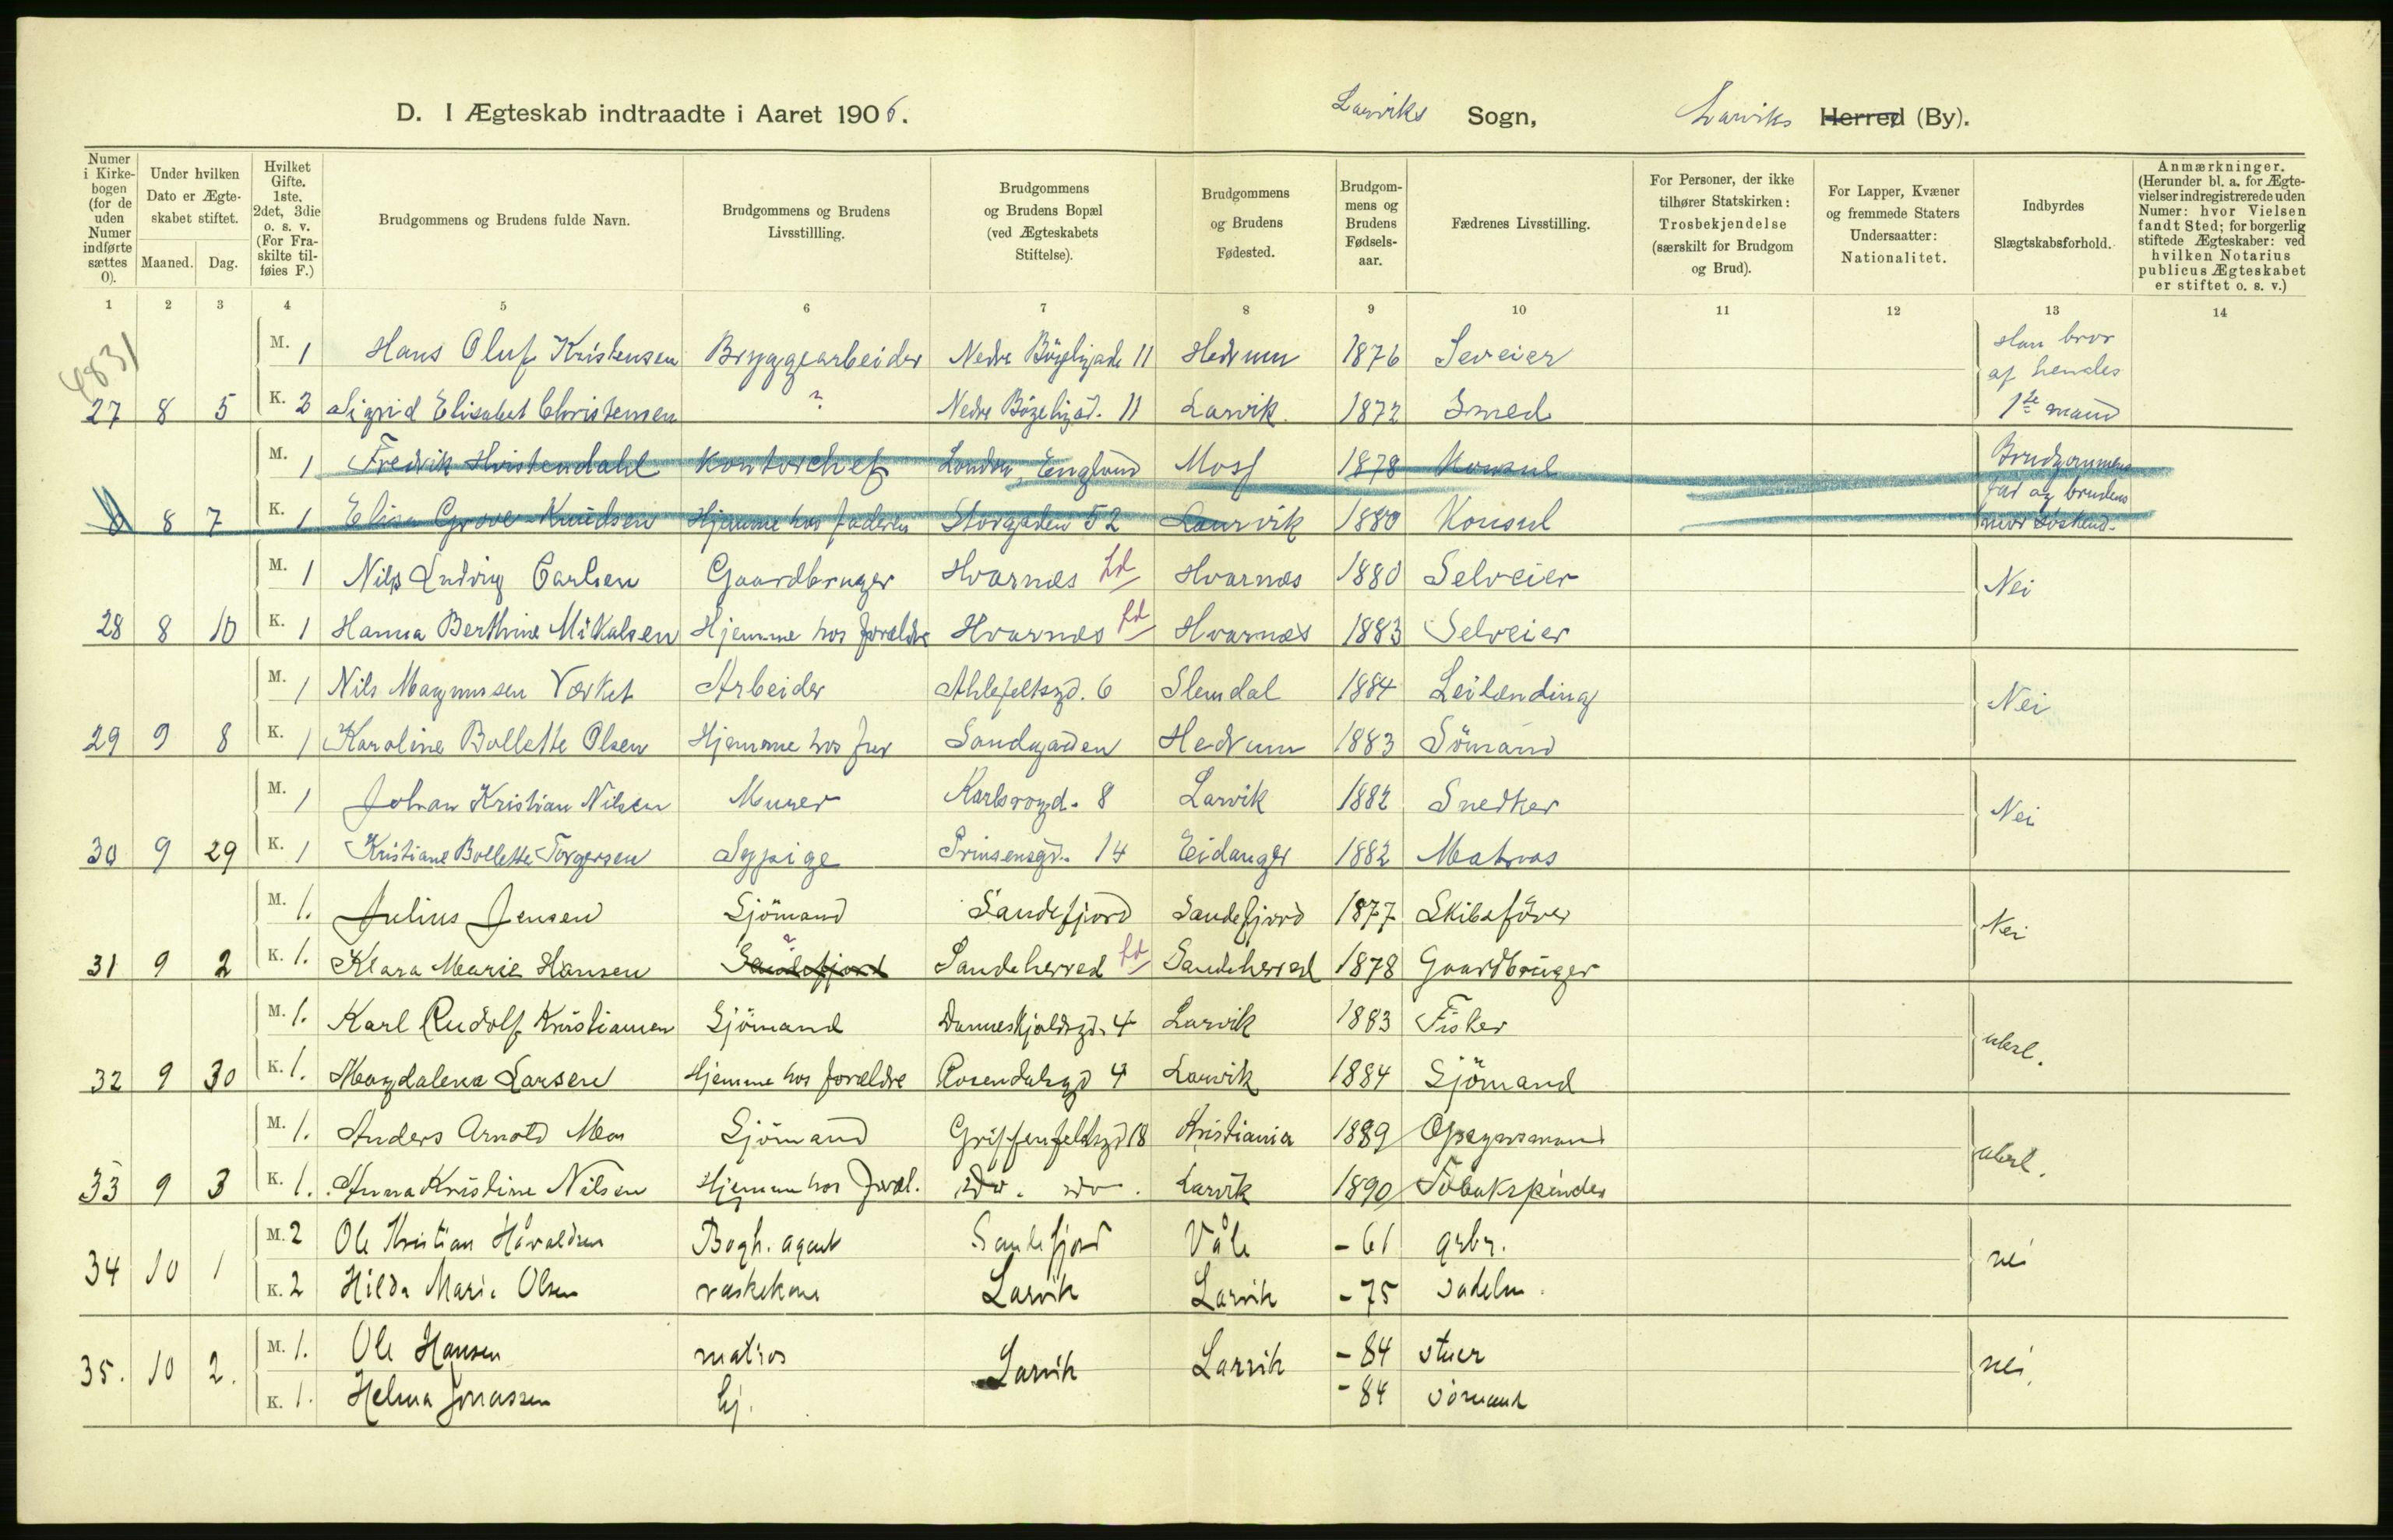 D. I Ægteskab indtraadte i Aaret 1906. Larviks Sogn, Larviks Herred (By).
Numer i Kirkebogen (for de uden Numer indførte sættes 0).
Under hvilken Dato er Ægteskabet stiftet.
Maaned. Dag.
Hvilket Gifte. 1ste, 2det, 3die o. s. v. (For Fraskilte tilføies F.)
Brudgommens og Brudens fulde Navn.
Brudgommens og Brudens Livsstillling.
Brudgommens og Brudens Bopæl (ved Ægteskabets Stiftelse).
Brudgommens og Brudens Fødested.
Brudgommens og Brudens Fødselsaar.
Fædrenes Livsstilling.
For Personer, der ikke tilhører Statskirken: Trosbekjendelse (særskilt for Brudgom og Brud).
For Lapper, Kvæner og fremmede Staters Undersaatter: Nationalitet.
Indbyrdes Slægtskabsforhold.
Anmærkninger. (Herunder bl. a. for Ægtevielser indregistrerede uden Numer: hvor Vielsen fandt Sted; for borgerlig stiftede Ægteskaber: ved hvilken Notarius publicus Ægteskabet er stiftet o. s. v.)
1 2 3 4 5 6 7 8 9 10 11 12 13 14
4831
M. 1 Hans Oluf Kristensen Bryggearbeider Nedre Bøgeligade 11 Hedrum 1876 Seveier Han bror af hendes
27 8 5 K. 2 Sigrid Elisabet Christensen ? Nedre Bøgeligad. 11 Larvik 1872 Smed 1ste mand
M. 1 Fredrik Hvistendahl Kontorchef London, England Moss 1878 Konsul Brudgommens
8 7 K. 1 Elisa Grove-Knudsen Hjemme hos faderen Storgaden 52 Laurvik 1880 Konsul far og brudens mor Søskend.
M. 1 Nils Ludvig Carlsen Gaardbruger Hvarnes Ld Hvarnes 1880 Selveier Nei
28 8 10 K. 1 Hanna Berthine Mikalsen Hjemme hos forældre Hvarnes Ld Hvarnes 1883 Selveier
M. 1 Nils Magnussen Værket Arbeider Ahlefeltsgd. 6 Slemdal 1884 Leilænding Nei
29 9 8 K. 1 Karoline Bollette Olsen Hjemme hos Sandegaden Hedrum 1883 Sömand
M. 1 Johan Kristian Nilsen Murer Karlsrogd. 8 Larvik 1882 Snedker Nei
30 9 29 K. 1 Kristiane Bollette Torgersen Sypige Prinsensgd. 14 Eidanger 1882 Matros
M. 1. Julius Jensen Sjömand Sandefjord Sandefjord 1877 Skibsförer Nei
31 9 2 K. 1. Klara Marie Hansen Sandefjord Sandeherred Ld Sandeherred 1878 Gaardbruger
M. 1. Karl Rudolf Kristiansen Sjömand Danneskjoldsgd. 4 Larvik 1883 Fisker ubesl.
32 9 30 K. 1. Magdalena Larsen Hjemme hos forældre Rosendalsgd 4 Larvik 1884 Sjömand
M. 1. Anders Arnold Moa Sjömand Griffenfeldtsgd 18 Kristiania 1889 Opsynsmand ubesl.
33 9 3 K. 1. Anna Kristine Nilsen Hjemme hos Foræl. do. do. Larvik 1890 Tobakspinder
M. 2 Ole Kristian Håvaldsen Bogh. agent Sandefjord Våle - 61 grbr. nei
34 10 1 K. 2 Hilda Marie Olsen vaskekone Larvik Larvik - 75 sadelm.
M. 1. Ole Hansen matros Larvik Larvik - 84 stuer nei.
35. 10 2. K. 1. Helma Jonassen hj. - 84 sömand